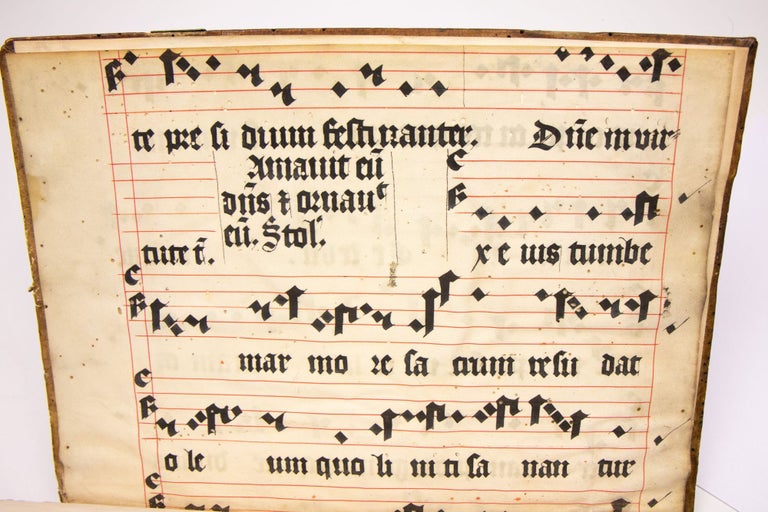 te pre si dium festi nanter. Dñe in vir
Amavit eũ
dñs ⁊ ornau
eũ. Stol
tute t̃. x e uis tumbe
mar mo re sa crum resu dat
o le um quo li ni ti sa nan tur